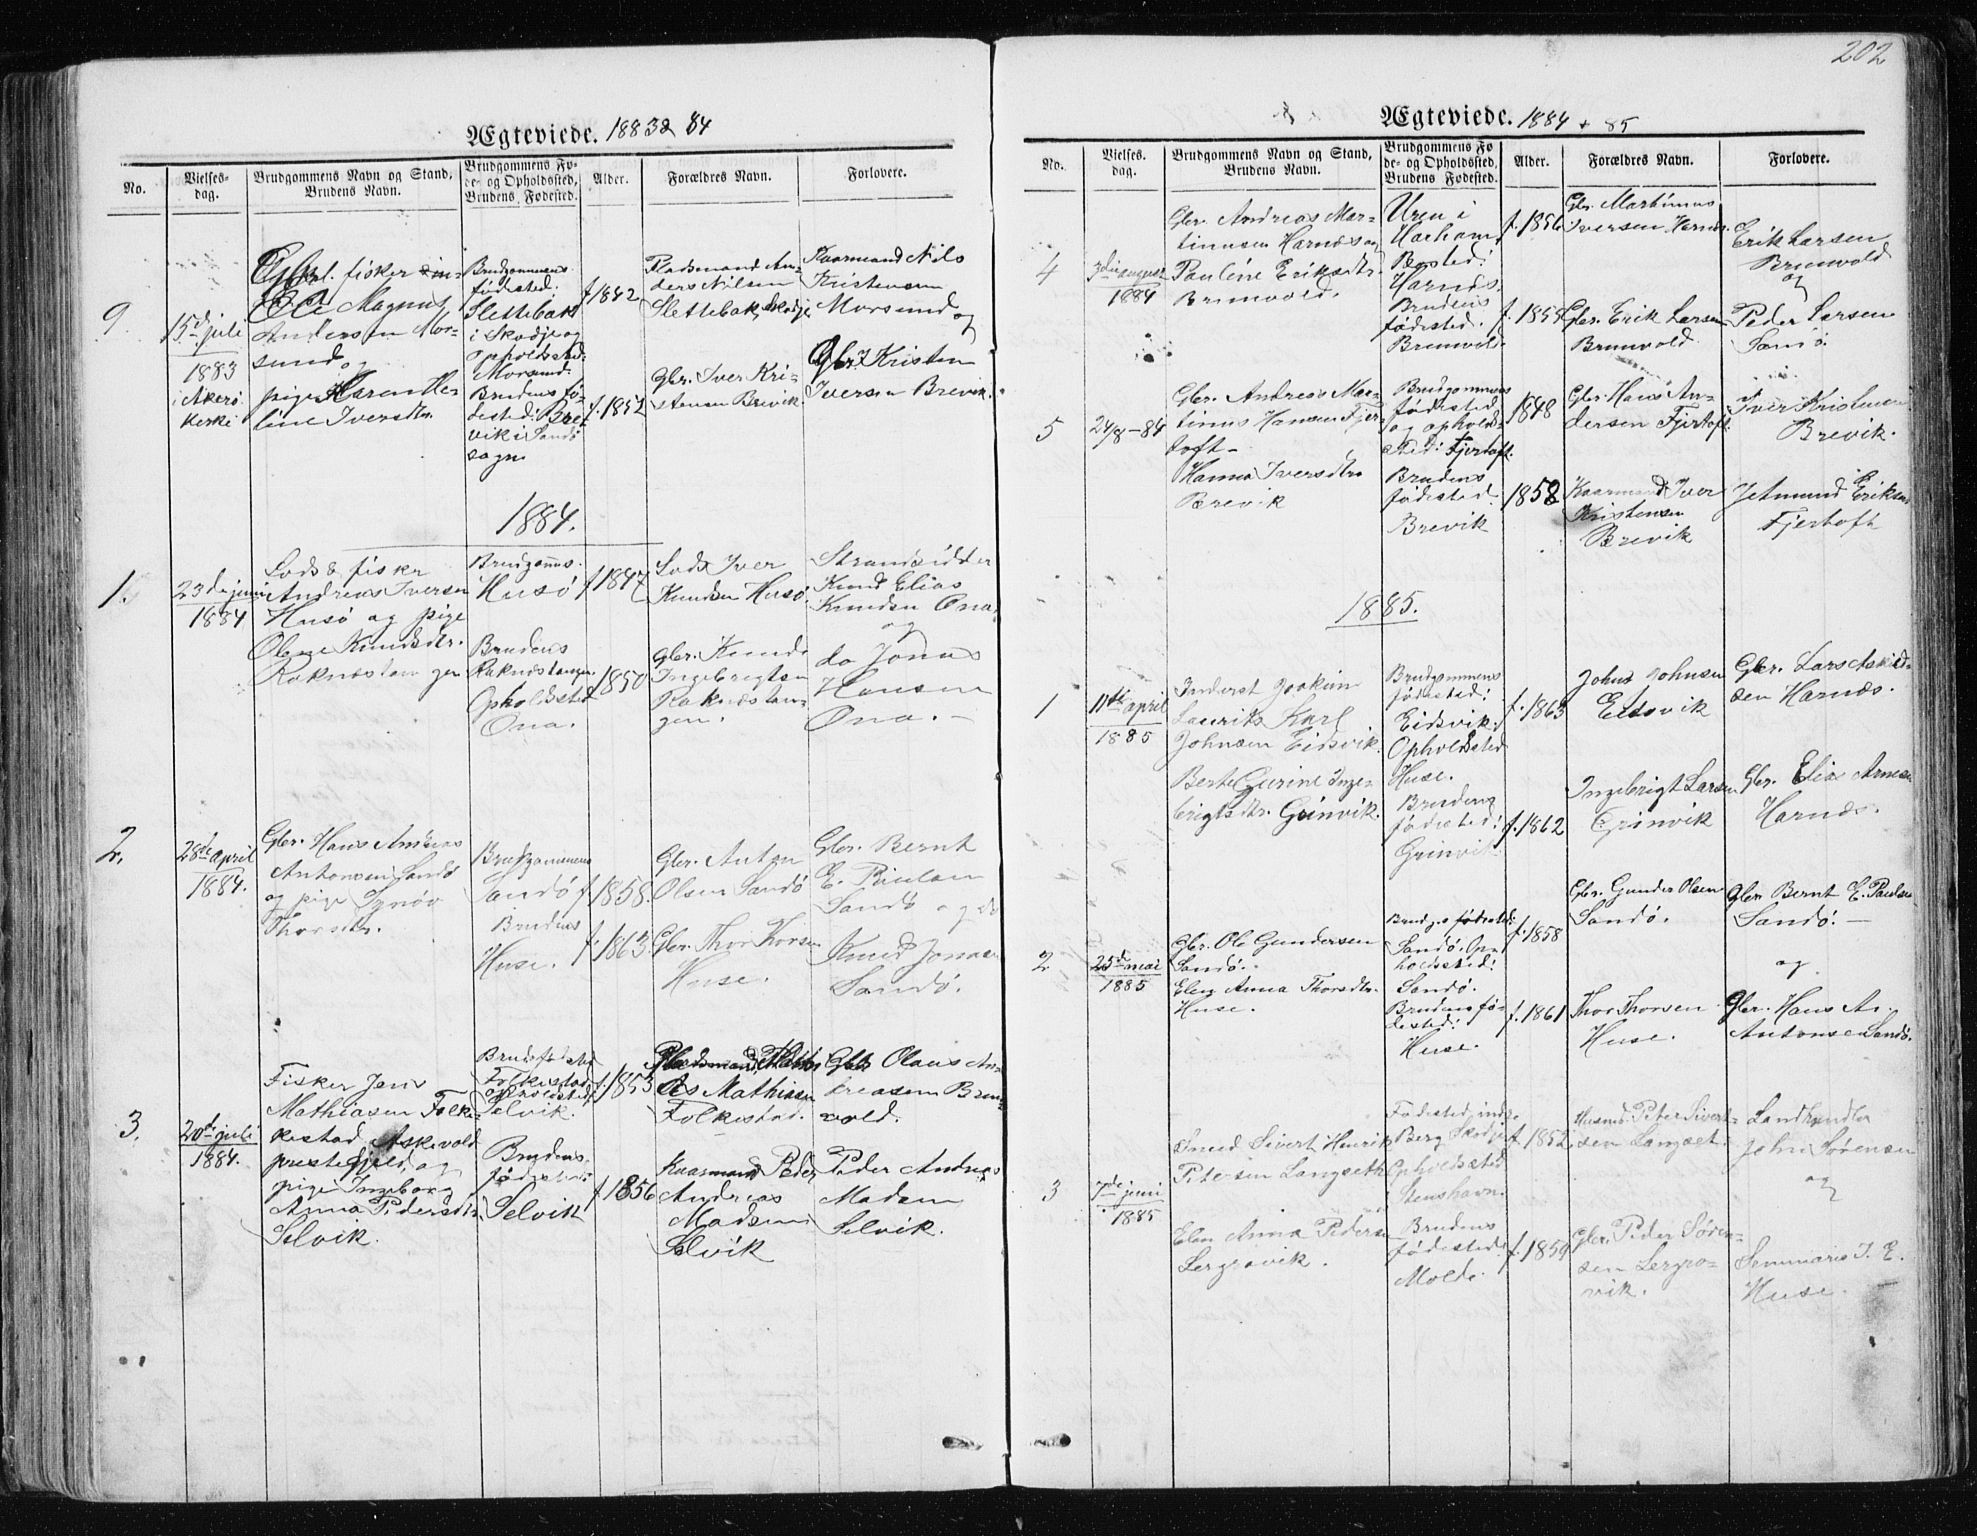 202
Ægteviede. 1883 & 84
No.
Vielses-
dag.
Brudgommens Navn og Stand,
Brudens Navn.
Brudgommens Fø-
de- og Opholdssted,
Brudens Fødested.
Alder.
Forældres Navn.
Forlovere.
9.
15de juli
1883
i Akerö
Kerki
fisker
Ole Magnus
Andersen Mor-
sund og
pige Maren He-
line Iversdtr.
Brudgommens
fødested:
Slettebak
i Skodje og
opholdssted:
Morsund.
Brudens fö-
dested: Bre-
vik i Sandö
sogn
f. 1842
f. 1852
Pladsmand An-
ders Nilsen
Slettebak, Skodje
Gbr. Iver Kri-
stensen Brevik.
Kaarmand Nils
Kristensen
Morsund og
Gbr. Kristen
Iversen Brevik.
1884.
1.
23de juni
1884
Lods & fisker
Andreas Iversen
Husö og pige
Oline Knudsdtr.
Raknestangen
Brudgoms
Husö
Brudens
Raknestangen
Opholdssted
Ona.
f 1847
1850
Lods Iver
Knudsen Husö.
Gbr. Knud
Ingebrigtsen
Raknestan-
gen.
Strandsidder
Knud Elias
Knudsen Ona
og
do Jonas
Hansen
Ona. -
2.
28de april
1884.
Gbr. Hans Andreas
Antonsen Sandö
og pige Synöv
Thorsdtr.
Brudgommens
Sandö
Brudens
Huse.
f. 1858.
f. 1863
Gbr. Anton
Olsen Sandö
Gbr. Thor Thorsen
Huse.
Gbr. Bernt
E. Paulsen
Sandö og do
Knud Jonsen
Sandö.
3.
20de juli
1884.
Fisker Jens
Mathiasen Folke-
kestad, Askevold
prestegjeld, og
pige Ingeborg
Anna Pedersdtr.
Selvik.
Brudg. fødested
Folkestad
opholdssted
Selvik.
Brudens
fødested:
Selvik
f. 1853
f. 1856
As Mathiasen
Folkestad.
Kaarmand Peder
Andreas
Madsen
Selvik
Gbr. Olaus An-
dreasen Brun-
vold.
Peder Andreas
Madsen
Selvik.
Ægteviede. 1884 + 85
No.
Vielses-
dag.
Brudgommens Navn og Stand,
Brudens Navn.
Brudgommens Fø-
de- og Opholdssted,
Brudens Fødested.
Alder.
Forældres Navn.
Forlovere.
4
3die august
1884
Gbr. Andreas Mar-
tinusen Harnæs og
Pauline Eriksdtr.
Brunvold.
Uren i
Harham,
Bosted:
Harnæs.
Brudens
fødested.
Brunvold.
f. 1856
f. 1855
Gbr. Martinus
Iversen Harnæs.
Gbr. Erik Larsen
Brunvold.
Erik Larsen
Brunvold
og
Peder Larsen
Sandö.
5
24/8 - 84
Gbr. Andreas Mar-
tinus Hansen Fjer-
toft -
Hanna Iversdtr.
Brevik
Brudgommens
fødested
og opholds-
sted: Fjertoft.
Brudens
fødested
Brevik
1848
1858
Gbr. Hans An-
dersen Fjertoft.
Kaarmand Iver
Kristensen
Brevik
Iver Kristensen
Brevik.
Jetmund Eriksen
Fjertoft
1885.
1
11te april
1885
Inderst Joakim
Laurits Karl
Johnsen Eidsvik.
Berte Gurine Inge-
brigtsdtr. Grinvik.
Brudgommens
fødested:
Eidsvik.
Opholdssted
Huse.
Brudens
fødested:
Grinvik
f. 1863
f. 1862
John Johnsen
Eidsvik
Ingebrigt Larsen
Grinvik
Gbr. Lars Aslid-
sen Harnæs.
Gbr. Elias Arnesen
Harnæs.
2
25de mai
1885
Gbr. Ole Gundersen
Sandö.
Elen Anna Thorsdtr.
Huse.
Brudg.s fødested:
Sandö. Op-
holdssted:
Sandö.
Brudens fö-
dested:
Huse.
f. 1858
f. 1861
Gbr. Gunder Olsen
Sandö.
Thor Thorsen
Huse.
Gbr. Bernt E. Paulsen
Sandö. -
og
Gbr. Hans An.
Antonsen Sandö.
3
7de juni
1885
Smed Sivert Henrik
Petersen Langseth
Elen Anna Pedersen
Lergrovik.
Fødested, inds.
Berg Skodje
Opholdssted
Stenshavn.
Brudens
fødested:
Molde.
f. 1852
f. 1859
Husmd. Peter Sivert-
sen Langset.
Gbr. Peder Sören-
sen Lergro-
vik.
Landhandler
John Sörensen
og
Seminarist I. E.
Huse.